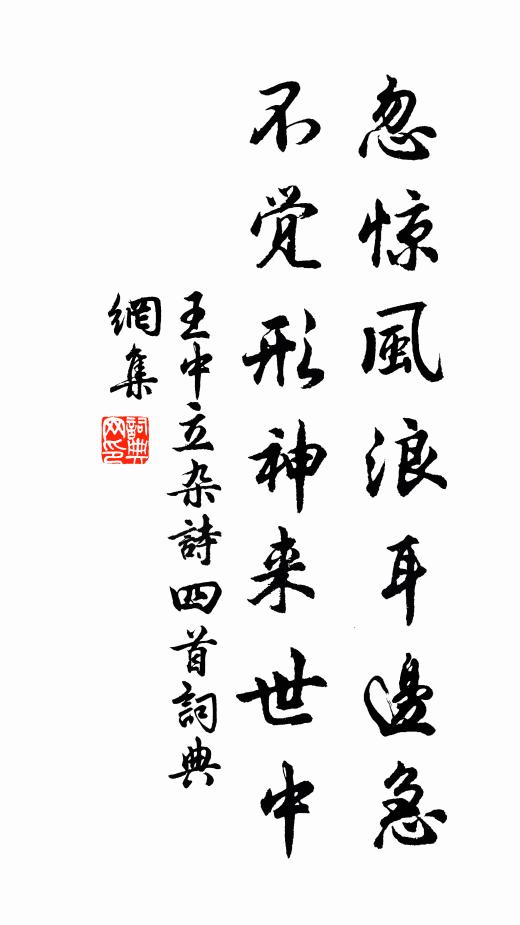 忽惊風浪耳邊急
不觉形神来世中
王中立杂詩四首詞典
網集
詞典网印